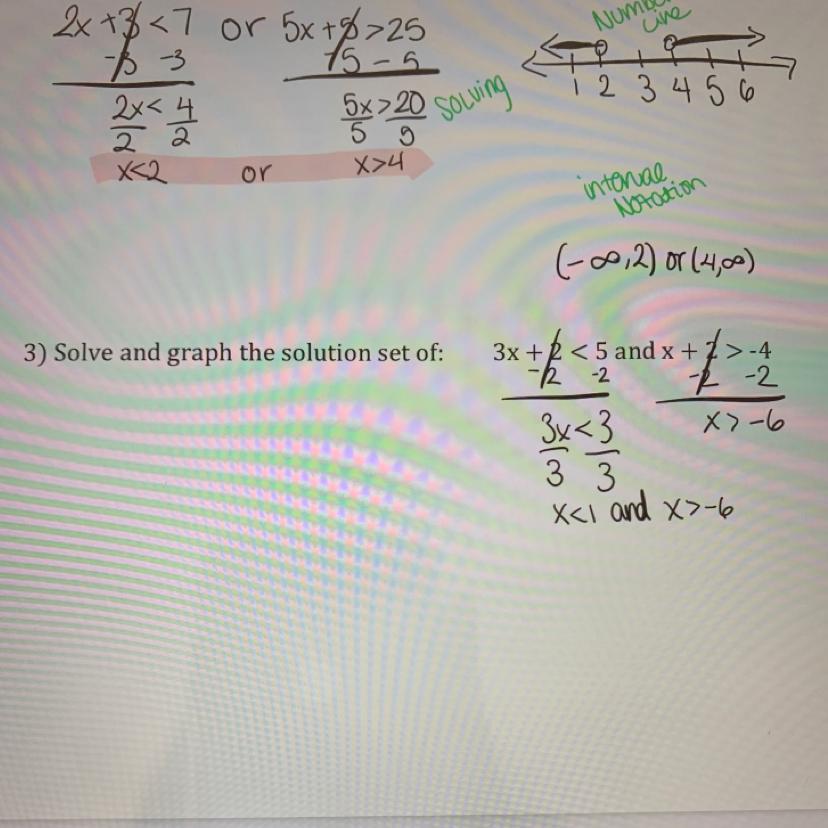 2x + 3 < 7 or 5x + 5 > 25
-3 -3 -5 - 5
2x < 4 5x > 20 Solving
2 2 5 5
x<2 or x>4
Number Line
1 2 3 4 5 6
interval Notation
(-∞,2) or (4,∞)
3) Solve and graph the solution set of: 3x + 2 < 5 and x + 2 > -4
-2 -2 -2 -2
3x < 3 x > -6
3 3
x<1 and x>-6